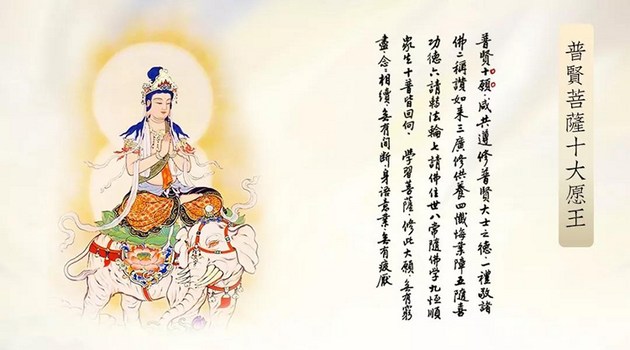 普賢菩薩十大愿王
普賢十願、咸共遵修普賢大士之德一禮敬諸
佛二稱讚如来三廣修供養四懺悔業障五隨喜
功德六請転法輪七請佛住世八常隨佛学九恒順
衆生十普皆回向、學習菩薩、修此大願、無有窮
盡、念念相續無有间断身语意業無有疲厭